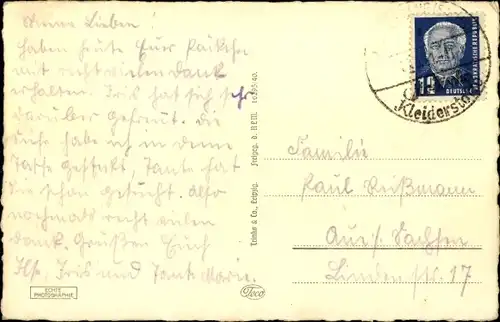 Meine Lieben!
haben heute Euer Päckchen
mit recht vielen dank
erhalten. Iris hat sich sehr
darüber gefreut. die
habe ich in deine
Tasse gesteckt, Tante hat
die schon gesucht. Also
nochmals recht vielen
dank. Grüßen Euch
Iris und Tante Marie.
ECHTE
PHOTOGRAPHIE
Trinks & Co., Leipzig. Freigeg. d. REM.
Teco
12
DEUTSCHE DEMOKRATISCHE REPUBLIK
Kleidersto
Familie
Paul Rüßmann
Aue / Sachsen
Linden str. 17